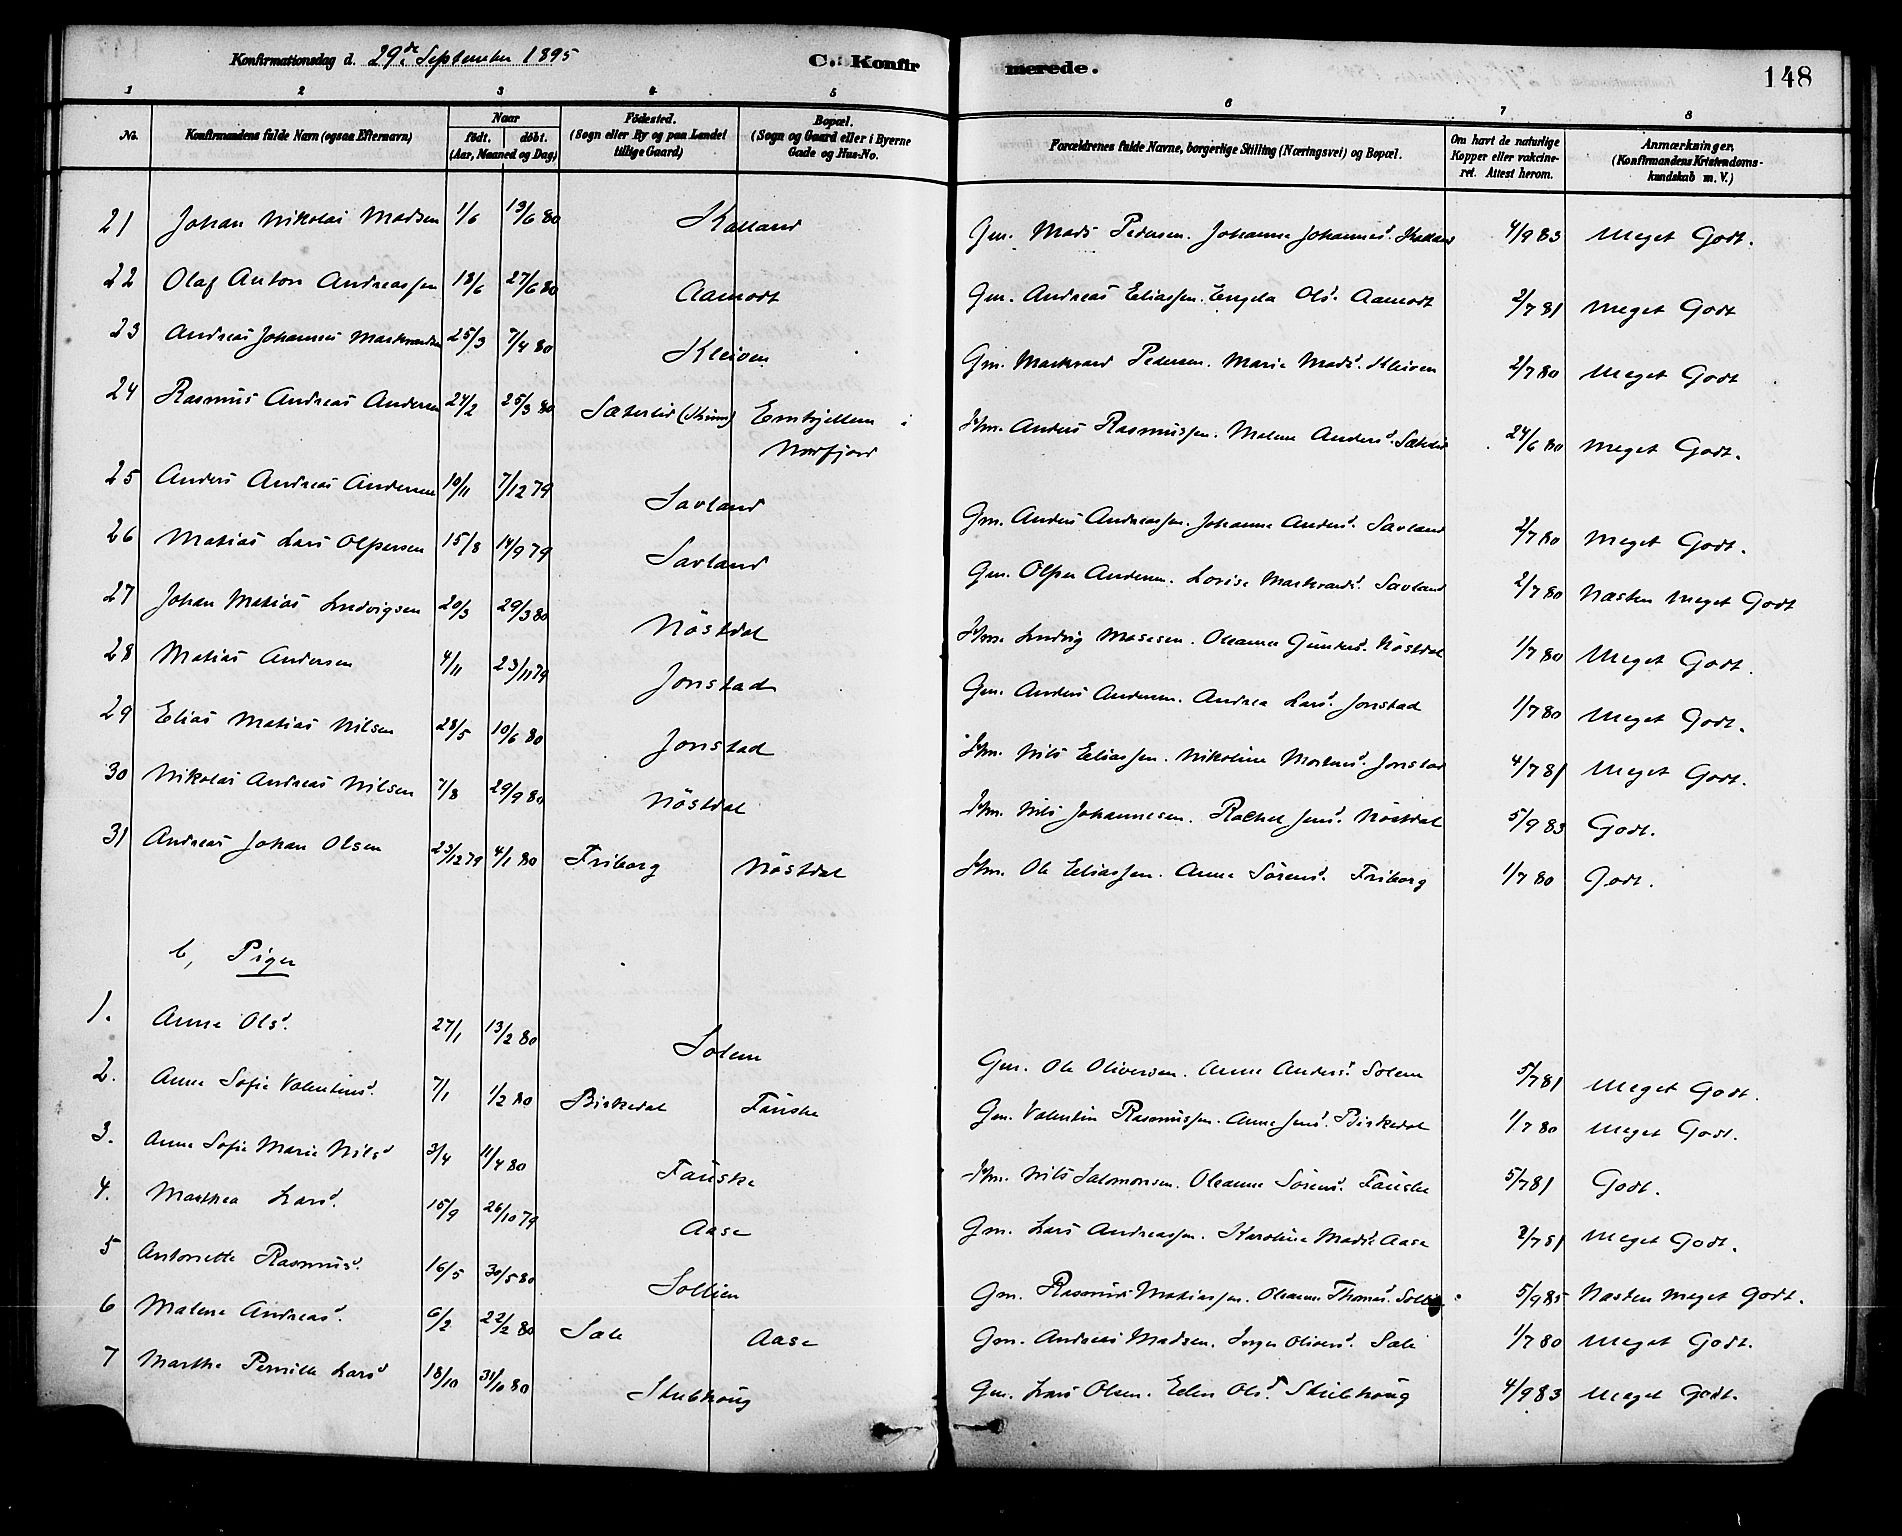 Konfirmationsdag d. 29de September 1895 C. Konfirmerede. 148
1 2 3 4 5 6 7 8
No. Konfirmandens fulde Navn (ogsaa Efternavn) Naar födt. döbt. (Aar, Maaned og Dag) Födested. (Sogn eller By og paa Landet tillige Gaard) Bopæl. (Sogn og Gaard eller i Byerne Gade og Hus-No. Forældrenes fulde Navne, borgerlige Stilling (Næringsvei) og Bopæl. Om havt de naturlige Kopper eller vakcineret. Attest herom. Anmærkninger. (Konfirmandens Kristendomskundskab m. V.)
21 Johan Nikolai Madsen 1/6 13/6 80 Kalland Gm. Mads Pedersen. Johanne Johannesd. Kalland 4/9 83 Meget Godt.
22 Olaf Anton Andreassen 18/6 27/6 80 Aamodt Gm. Andreas Eliassen. Engela Olsd. Aamodt 2/7 81 Meget Godt
23 Andreas Johannes Markvardsen 25/3 7/4 80 Kleiven Gm. Markvard Pedersen. Marie Madsd. Kleiven 2/7 80 Meget Godt
24 Rasmus Andreas Andersen 24/2 25/3 80 Sæterlid (Kinn) Emhjellem i Nordfjord Hm. Anders Rasmussen. Malene Andersd. Sæterlid 24/6 80 Meget Godt.
25 Anders Andreas Andersen 10/11 7/12 79 Savland Gm. Anders Andreassen. Johanne Andersd. Savland 2/7 80 Meget Godt.
26 Matias Lars Olpersen 15/8 14/9 79 Savland Gm. Olper Andersen. Lovise Markvardsd. Savland 2/7 80 Næsten Meget Godt
27 Johan Matias Ludvigsen 20/3 29/3 80 Nöstdal Hm. Ludvig Mosesen. Oleanne Gundersd. Nöstdal 1/7 80 Meget Godt.
28 Matias Andersen 4/11 23/11 79 Jonstad Gm. Anders Andersen. Andrea Larsd. Jonstad 1/7 80 Meget Godt.
29 Elias Matias Nilsen 28/5 10/6 80 Jonstad Hm. Nils Eliassen. Nikoline Mortensd. Jonstad 4/7 81 Meget Godt.
30 Nikolai Andreas Nilsen 7/8 29/9 80 Nöstdal Hm. Nils Johannesen. Rachel Jensd. Nöstdal 5/9 83 Godt.
31 Andreas Johan Olsen 23/12 79 4/1 80 Friborg Nöstdal Hm. Ole Eliassen. Anne Sörensd. Friborg 1/7 80 Godt.
b, Piger
1. Anne Olsd. 27/1 13/2 80 Solem Gm. Ole Oliversen. Anne Andersd. Solem 5/7 81 Meget Godt.
2. Anne Sofie Valentinsd. 7/1 1/2 80 Birkedal Fauske Gm. Valentin Rasmussen. Anne Jensd. Birkedal 1/7 80 Meget Godt.
3. Anne Sofie Marie Nilsd 3/4 11/4 80 Fauske Hm. Nils Salomonsen. Oleanne Sörensd. Fauske 5/7 81 Godt.
4. Marthea Larsd. 15/9 26/10 79 Aase Gm. Lars Andreassen. Karoline Madsd. Aase 2/7 81 Meget Godt.
5 Antonette Rasmusd. 16/5 30/5 80 Sollien Gm. Rasmus Matiassen. Oleanne Thomasd. Sollien 5/9 85 Næsten Meget Godt.
6 Malene Andreasd. 6/2 22/2 80 Sæle Aase Gm. Andreas Madsen. Inger Oliversd. Sæle 1/7 80 Meget Godt.
7 Marthe Pernille Larsd 18/10 31/10 80 Stubhoug Gm. Lars Olsen. Elen Olsd. Stubhoug 4/9 83 Meget Godt.